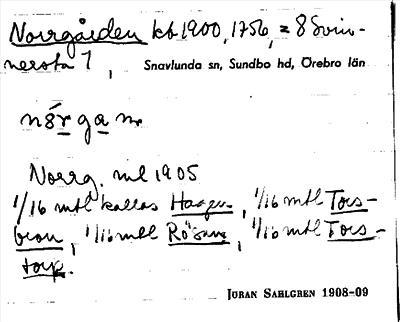 Norrgården kb 1900, 1756, = 8 Svin-
nersta 1,
Snavlunda sn, Sundbo hd, Örebro län
nórgan
Norrg. ml 1905
1/16 mtl kallas Hagen, 1/16 mtl Tors-
bron, 1/16 mtl Rösan, 1/16 mtl Tors-
torp.
Jöran Sahlgren 1908-09